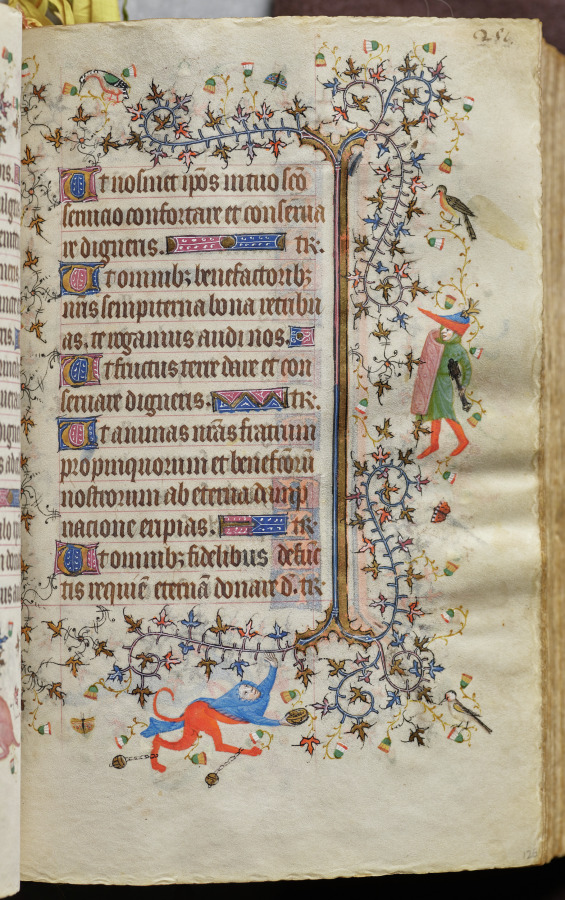 Et nos inet ipōs in tuo scō
servicio confortare et conserva
re digneris. tR.
Et omnibꝫ benefactoribꝫ
nris sempiterna bona retribu
as. te rogamus audi nos.
Et fructus terre dare et con
servare digneris. tR.
Et animas nr̄as fratrum
propinquorum et benefcōrū
nostrorum ab eterna damp
nacione eripias. tR
Et omnibꝫ fidelibus defuc
tis requiē eternā donare d. tR